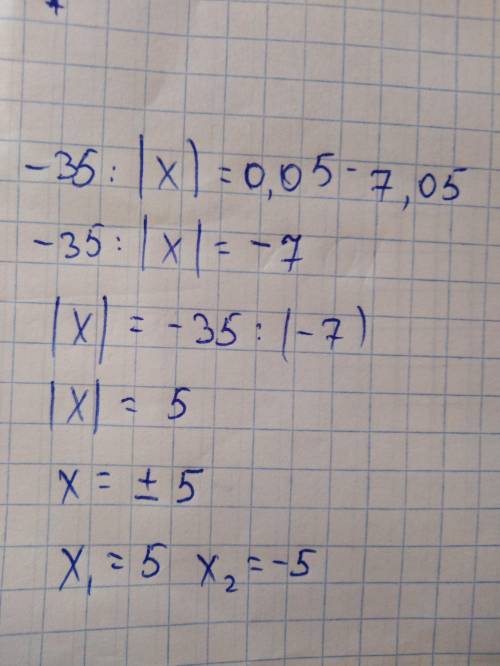 -35 : |x| = 0,05 - 7,05
-35 : |x| = -7
|x| = -35 : (-7)
|x| = 5
x = ± 5
x₁ = 5 x₂ = -5